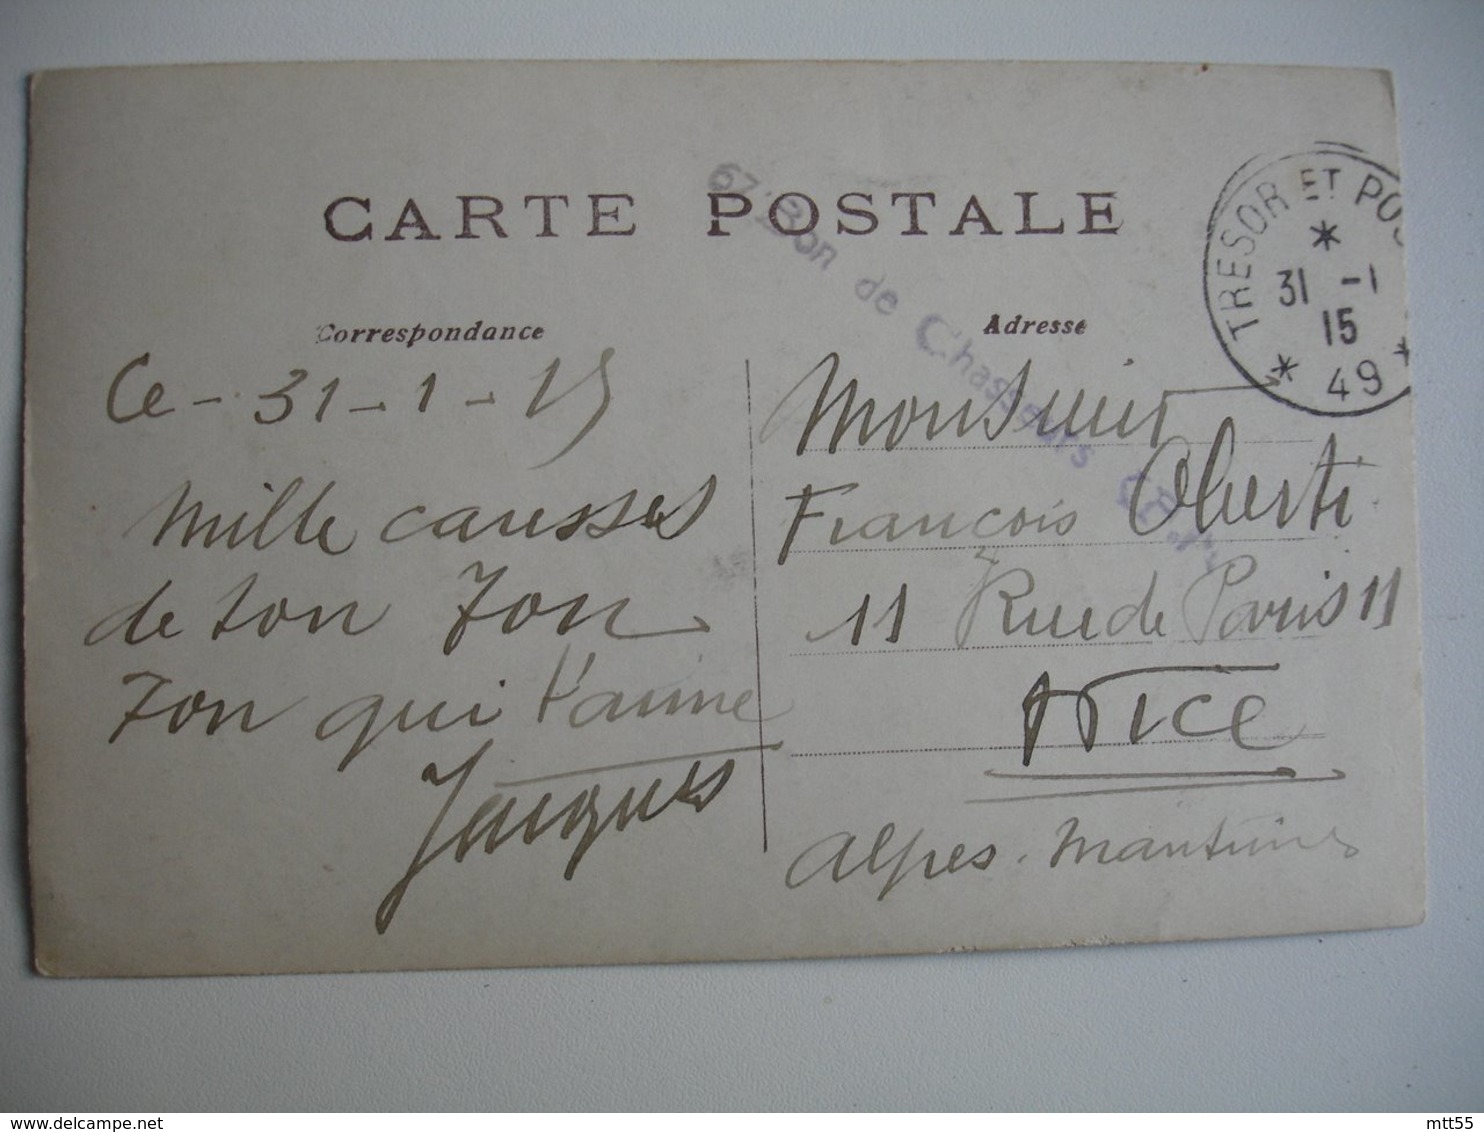 CARTE POSTALE
67 Bon de Chasseurs
TRESOR ET POS
31 -1
15
49
Correspondance
Ce - 31 - 1 - 15
Mille caresses
de ton Zon
Zon qui t'aime
Jacques
Adresse
Monsieur
François Oberti
11 Rue de Paris 11
NICE
Alpes-Maritimes
mtt55